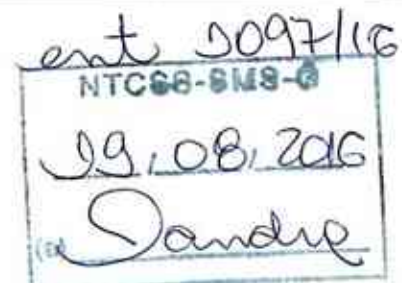 ent 1097/16
NTCSS-SMS-G
19,08,2016